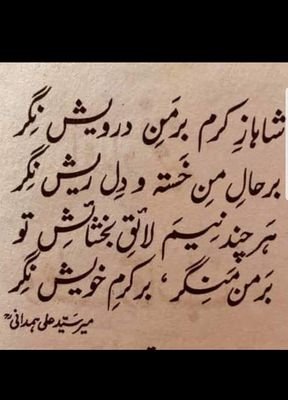 شاہا زِ کرم برمَنِ درویش نِگر
برحالِ منِ خَستہ و دِل ریش نِگر
ہَر چند نِیَم لائقِ بخشائشِ تو
بَرمن مَنِگر، بر کرمِ خویش نِگر
میر سیّد علی ہمدانیؒ